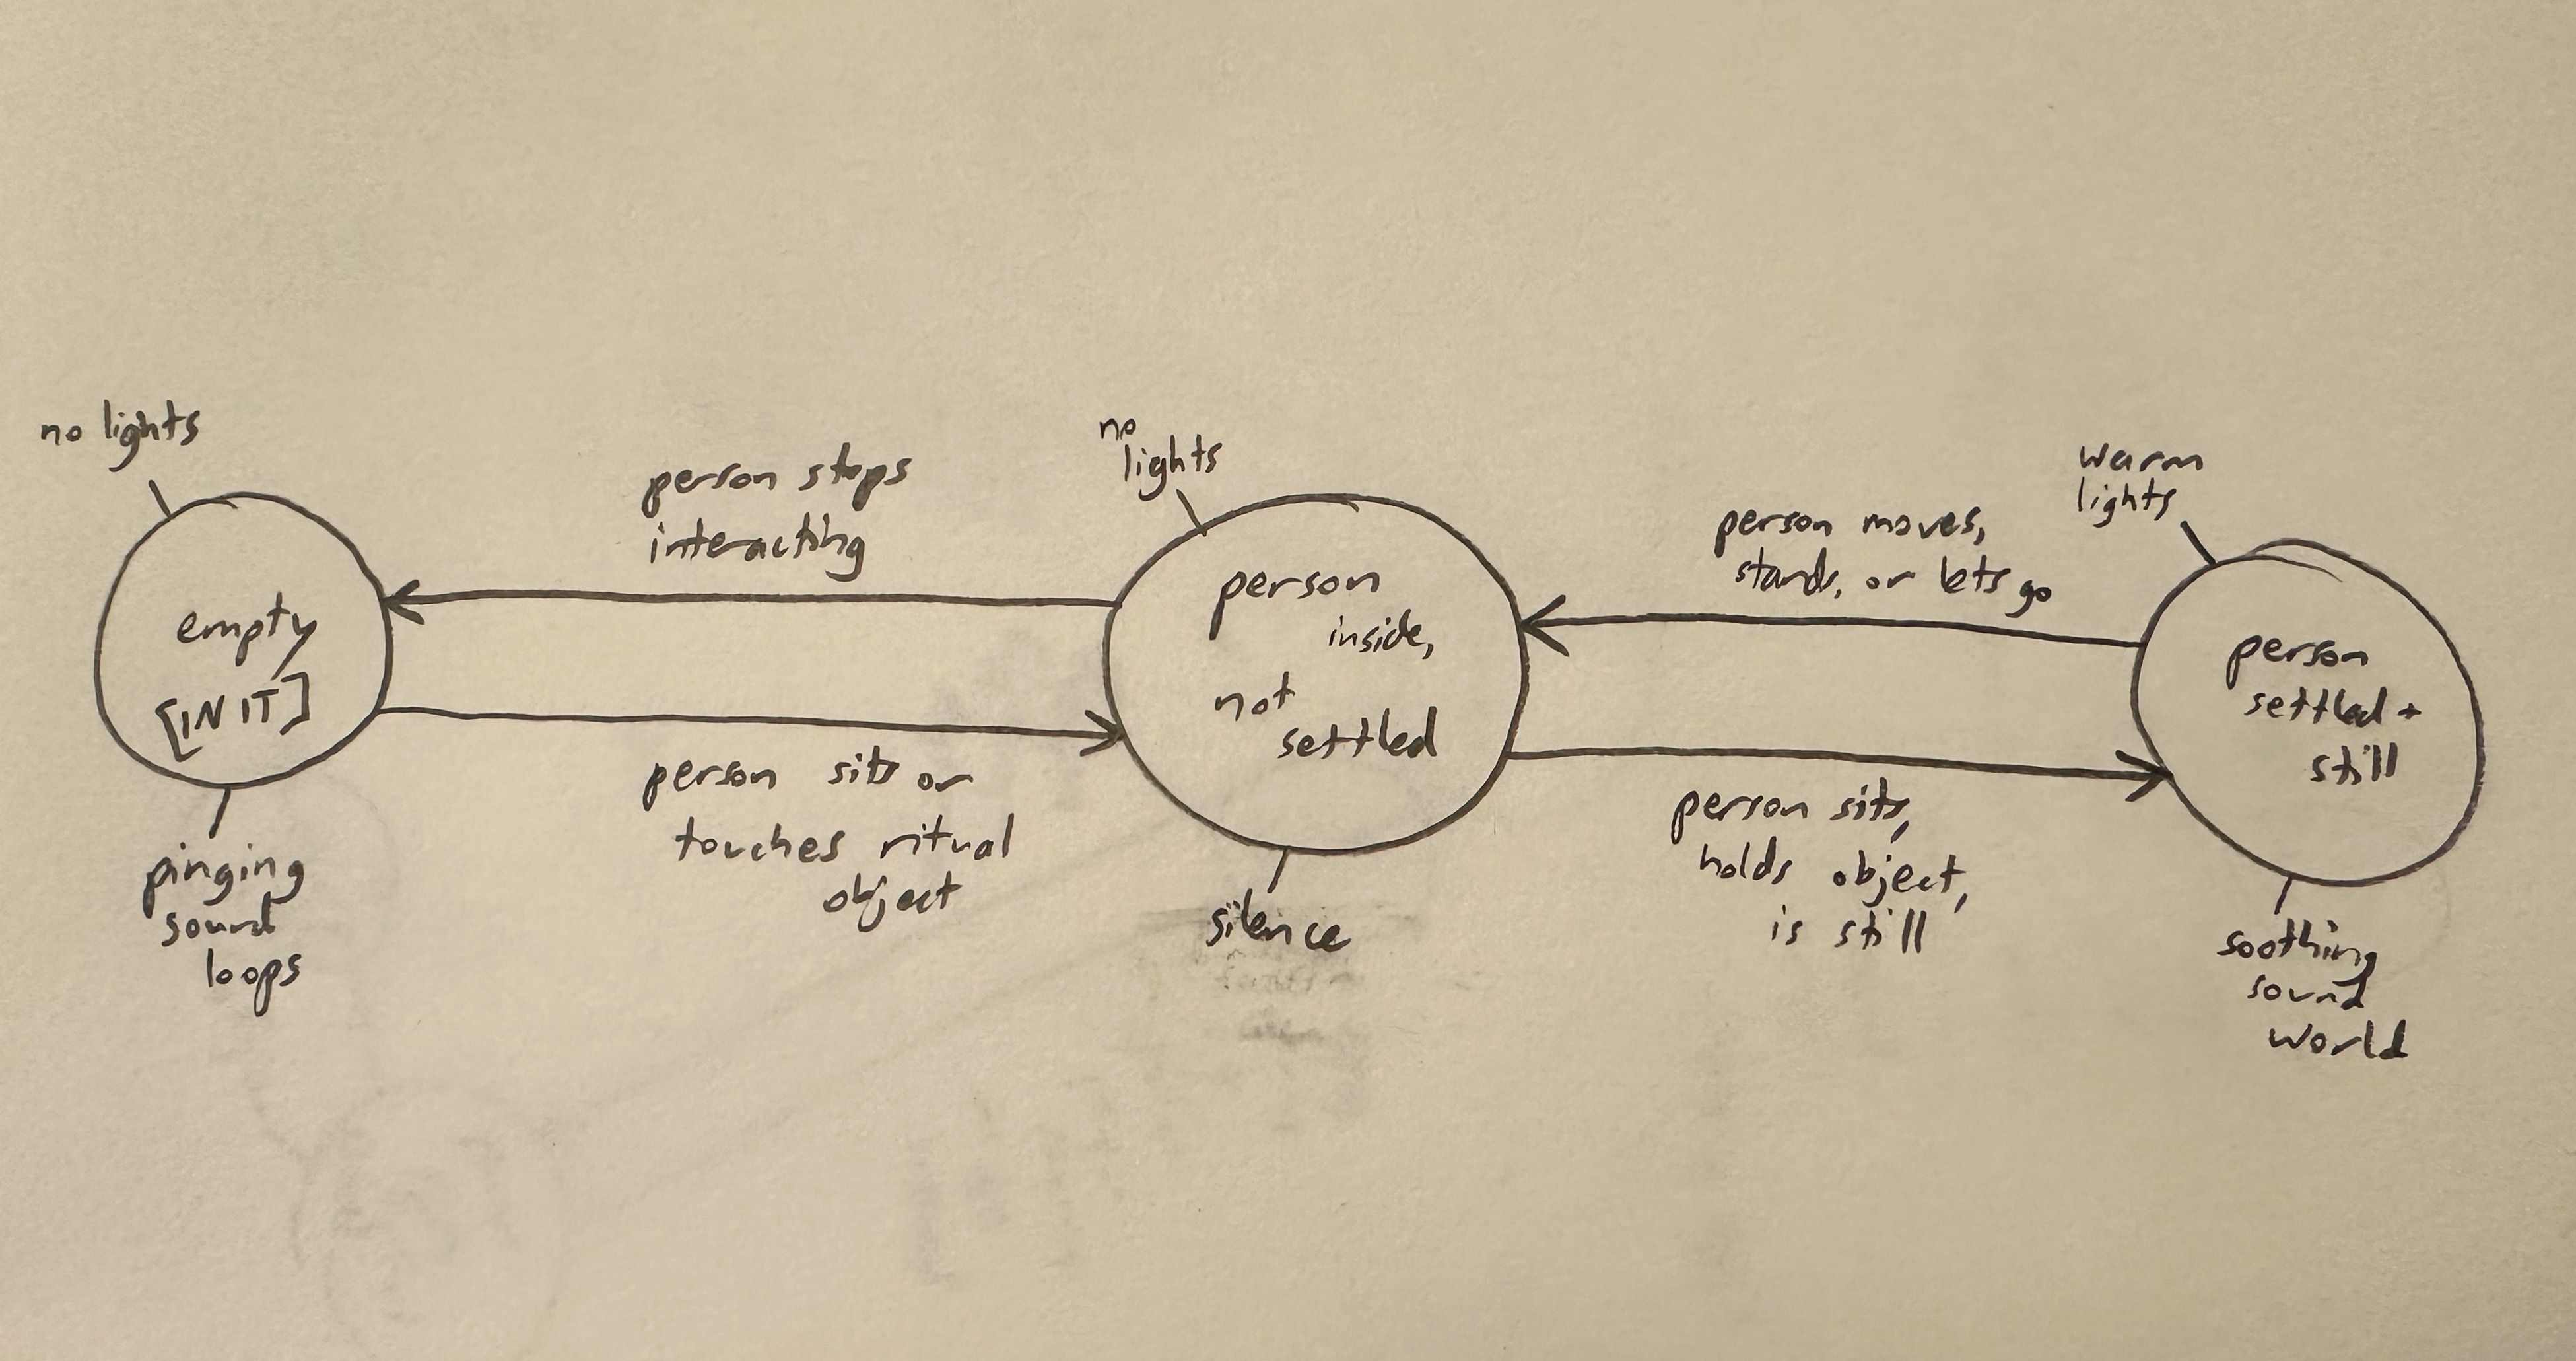 no lights
empty
[INIT]
pinging
sound
loops
person stops
interacting
person sits or
touches ritual
object
no
lights
person
inside,
not
settled
silence
person moves,
stands, or lets go
person sits,
holds object,
is still
warm
lights
person
settled +
still
soothing
sound
world